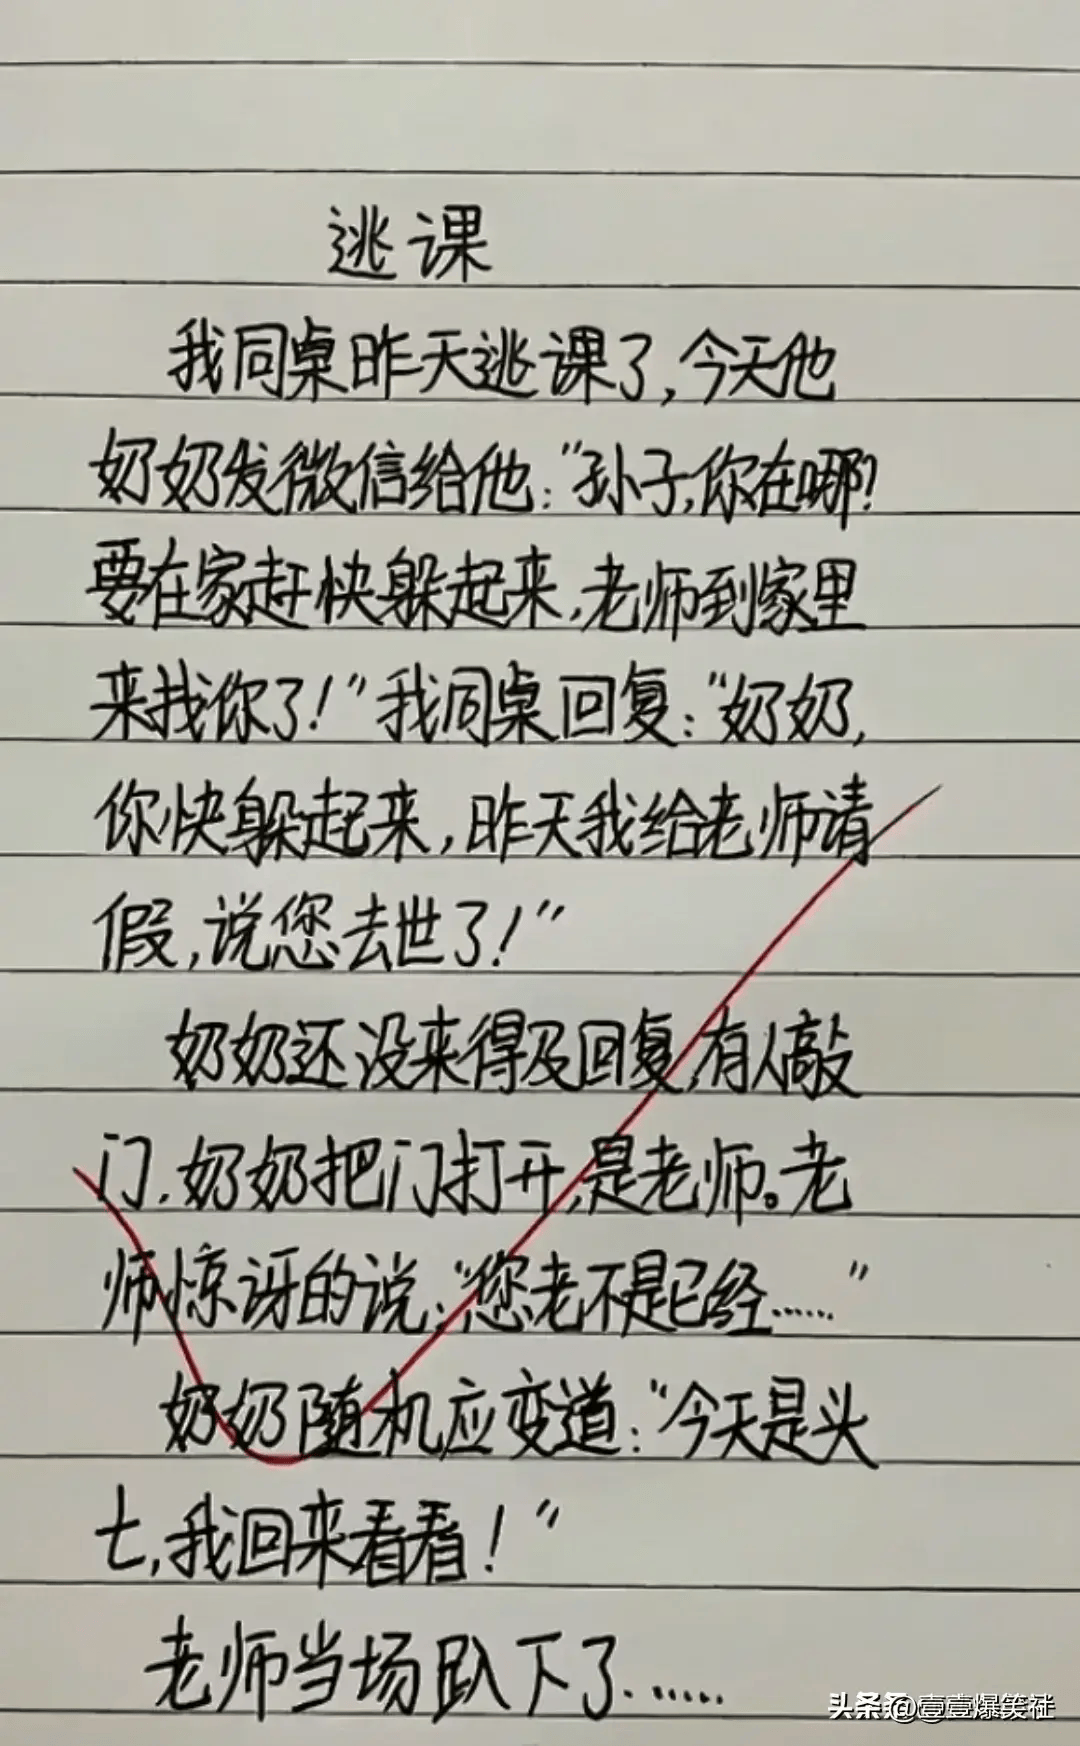 逃课
我同桌昨天逃课了,今天他
奶奶发微信给他:"孙子,你在哪?
要在家赶快躲起来,老师到家里
来找你了!"我同桌回复:"奶奶,
你快躲起来,昨天我给老师请
假,说您去世了!"
奶奶还没来得及回复,有人敲
门.奶奶把门打开,是老师。老
师惊讶的说:"您老不是已经……"
奶奶随机应变道:"今天是头
七,我回来看看!"
老师当场趴下了……
头条 @壹壹爆笑社